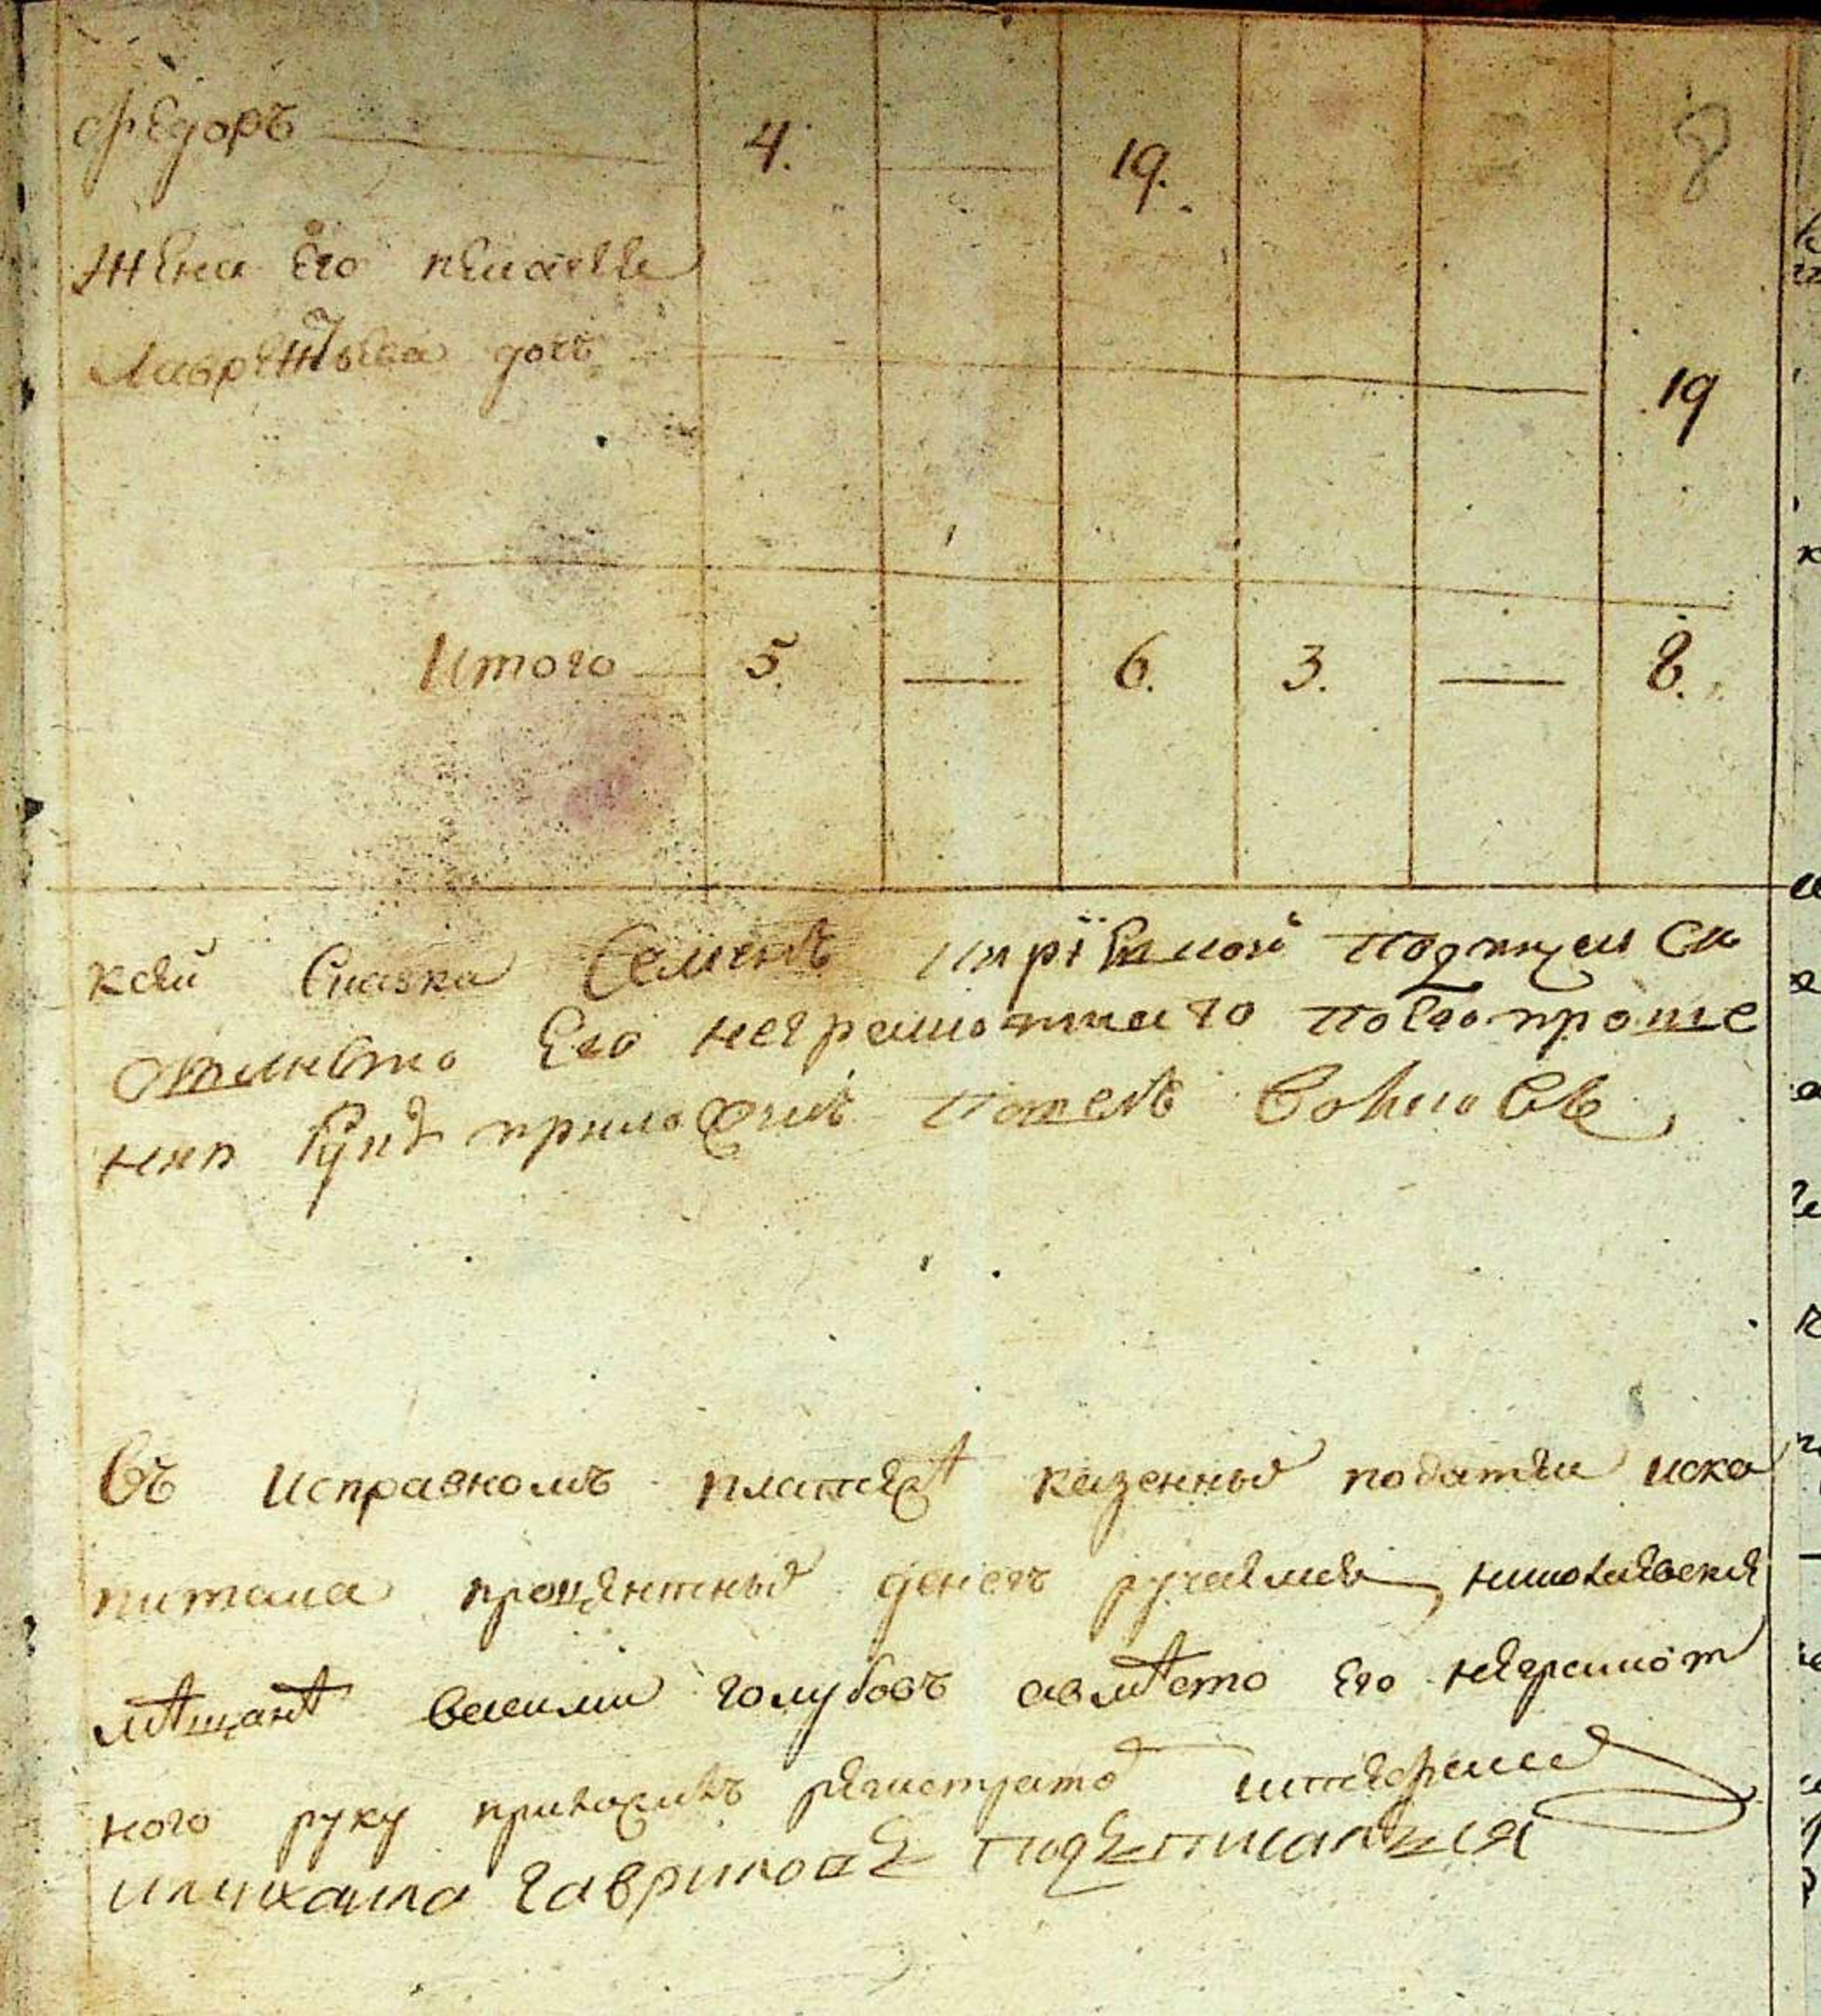 федоръ 4. 19. 8
Жена Его пелагея
Лаврентьева дочь 19
Итого 5. 6. 3. 8.
сказка Семенъ
Его неграмотнаго по Его проше
нию руку приложилъ
Въ исправномъ платеже казенныхъ податеи иска
питала процентныхъ денегъ ручаемся николаевския
мѣщанѣ василии голубовъ авмѣсто Его неграмот
ного руку приложилъ регистраторъ
имихаила гавриловъ подъписался